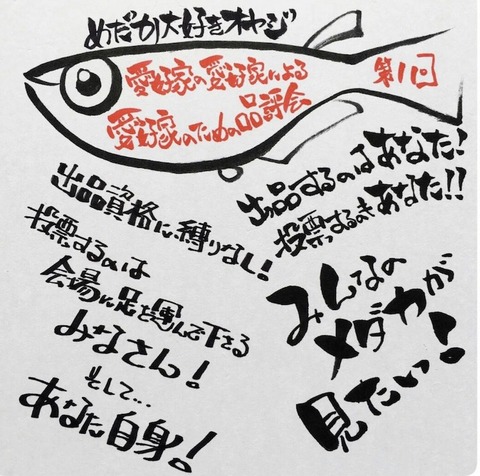 めだか大好きオヤジ
愛好家の愛好家による
愛好家のための品評会
第11回
出品するのはあなた!
投票するのもあなた!!
出品資格に縛りなし!
投票するのは
会場に足を運んで下さる
みなさん!
そして…
あなた自身!
みんなの
メダカが
見たいっ!